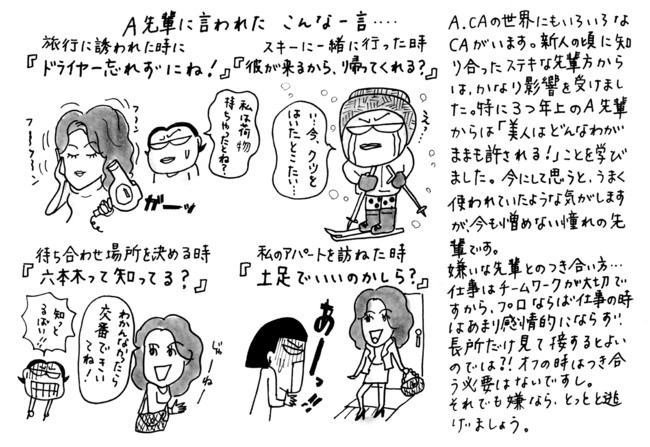 A先輩に言われた こんな一言‥‥
旅行に誘われた時に
『ドライヤー忘れずにね！』
フーーン
フーーン
私は荷物
持ちだったとね?
ガーッ
スキーに一緒に行った時
『彼が来るから、帰ってくれる?』
い、今、クツを
はいたとこたい…
待ち合わせ場所を決める時
『六本木って知ってる?』
知っとるばい!!
わかんなかったら
交番できい
てね!
じゃーねー
私のアパートを訪ねた時
『土足でいいのかしら?』
あーっ!!
A.CAの世界にもいろいろな
CAがいます。新人の頃に知
り合ったステキな先輩方から
は、かなり影響を受けまし
た。特に3つ年上のA先輩
からは「美人はどんなわが
ままも許される!」ことを学び
ました。今にして思うと、うまく
使われていたような気がします
が、今も憎めない憧れの先
輩です。
嫌いな先輩とのつき合い方…
仕事はチームワークが大切で
すから、プロならば仕事の時
はあまり感情的にならず、
長所だけ見て接するとよい
のでは?! オフの時はつき合
う必要はないですし。
それでも嫌なら、とっとと逃
げましょう。